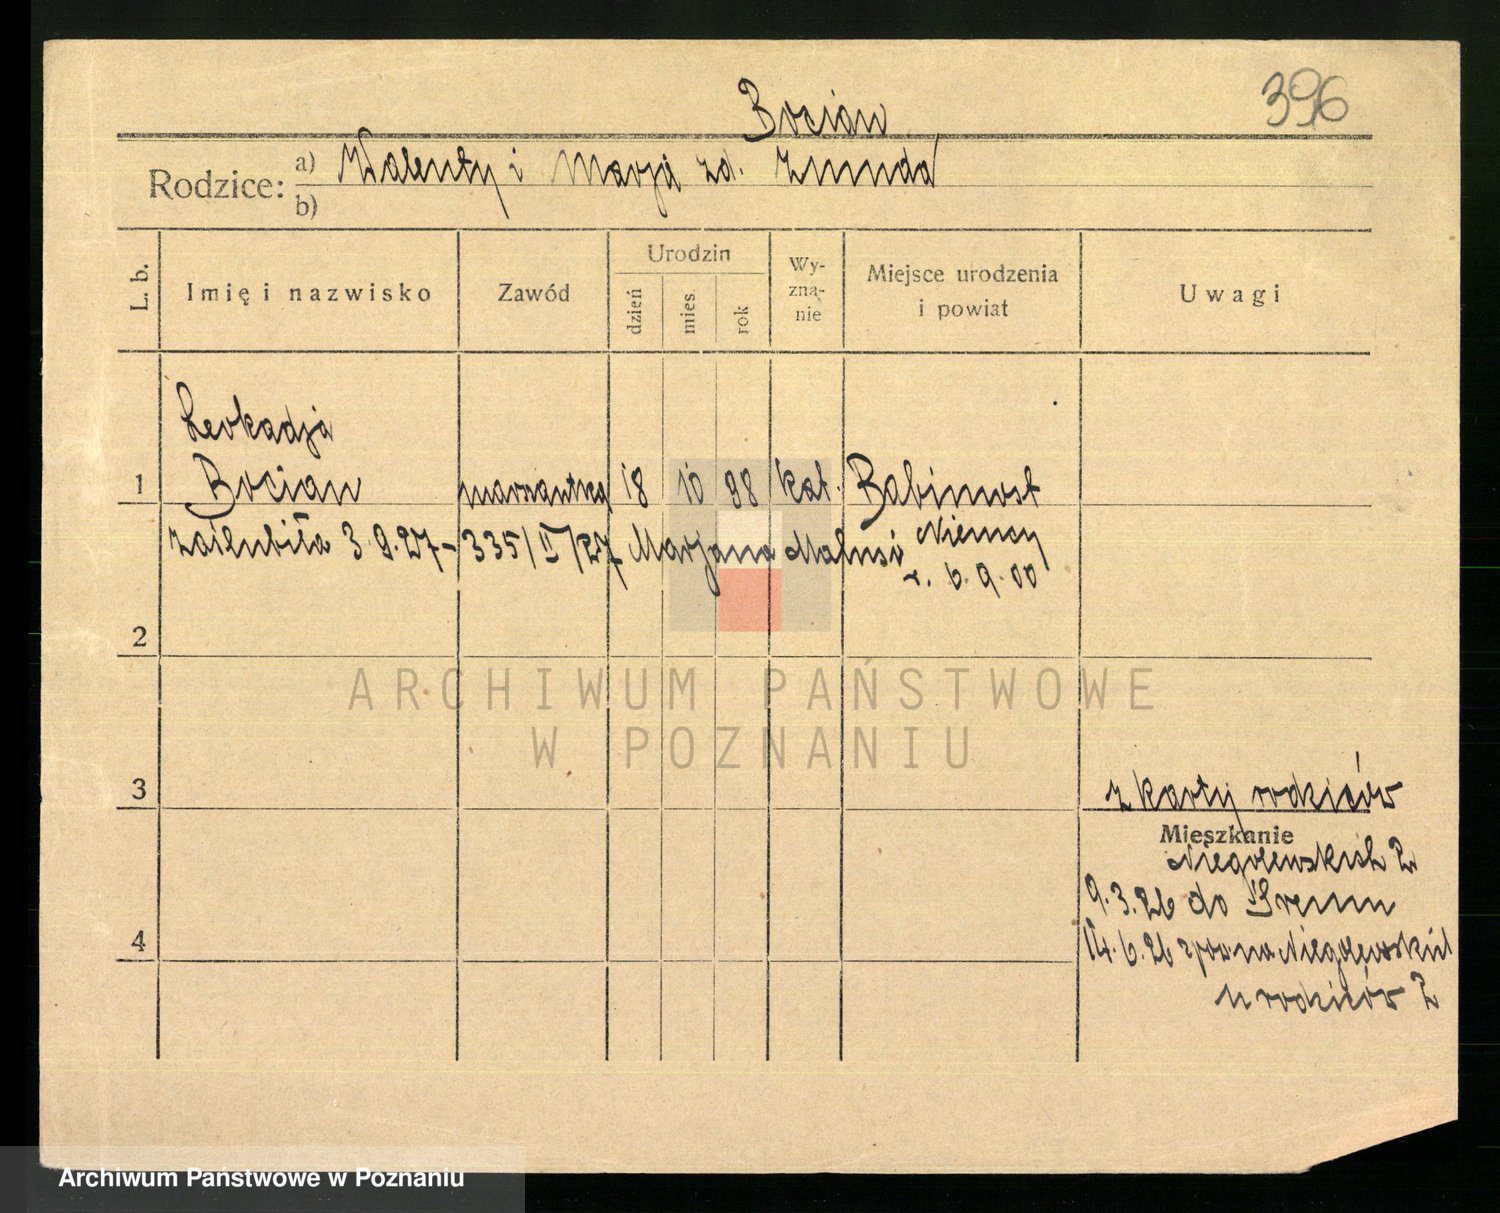 396
Bocian
Rodzice: a) Walenty i Marja zd. Żmuda
b)
L. b.
Imię i nazwisko
Zawód
Urodzin
dzień
mies.
rok
Wy-
zna-
nie
Miejsce urodzenia
i powiat
Uwagi
Leokadja
1 Bocian 18 10 88 kat. Babimost
Niemcy
zaślubiła 3.9.27 - 335/II/27 Marjana
r. 6.9.00
2
3
z karty rodziców
Mieszkanie
Niegolewskich 2
9.3.26 do Śremu
14.6.26 Niegolewskich
u rodziców 2
4
ARCHIWUM PAŃSTWOWE
W POZNANIU
Archiwum Państwowe w Poznaniu